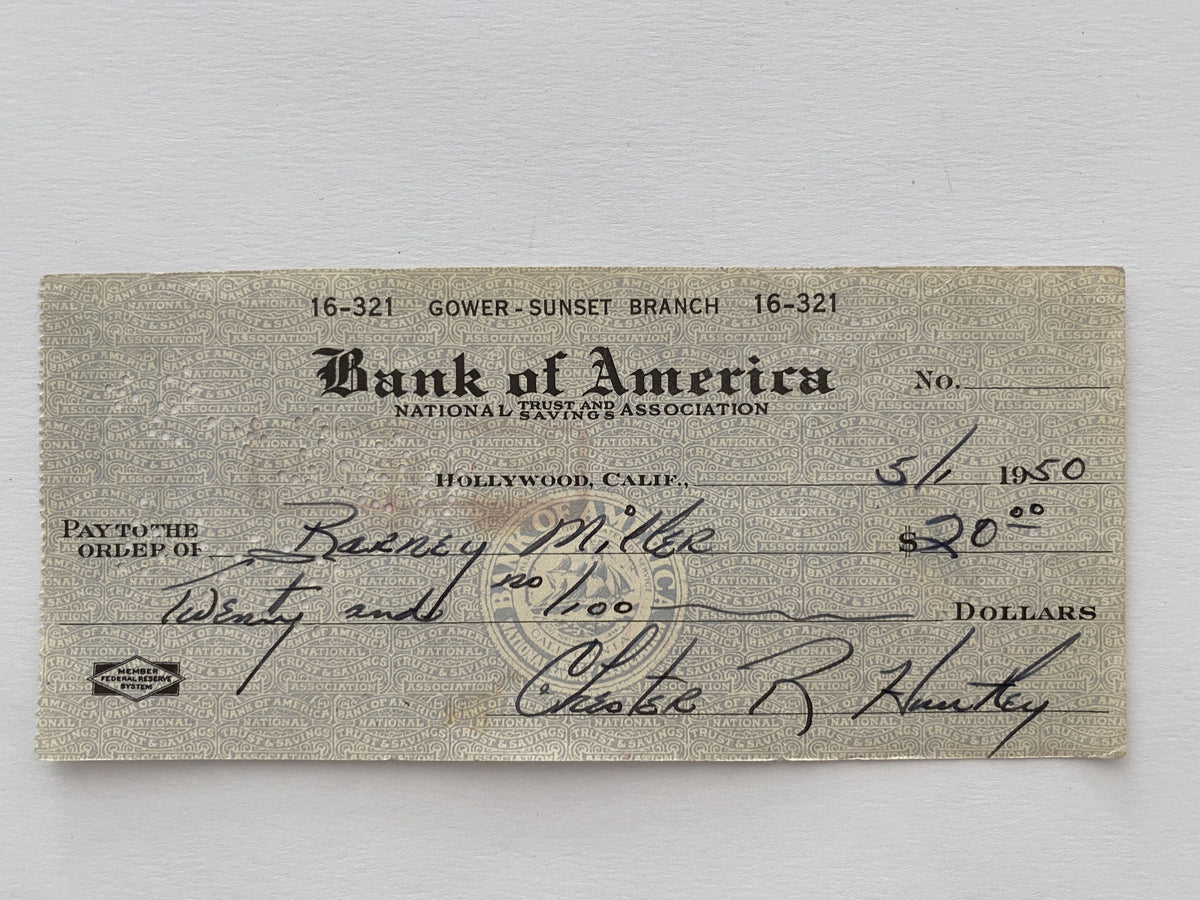 16-321 GOWER - SUNSET BRANCH 16-321
Bank of America
NATIONAL TRUST AND SAVINGS ASSOCIATION
No.
HOLLYWOOD, CALIF., 5/1 1950
PAY TO THE
ORDER OF Barney Miller $20 00
Twenty and no/100 DOLLARS
MEMBER
FEDERAL RESERVE
SYSTEM
Chester R Huntley